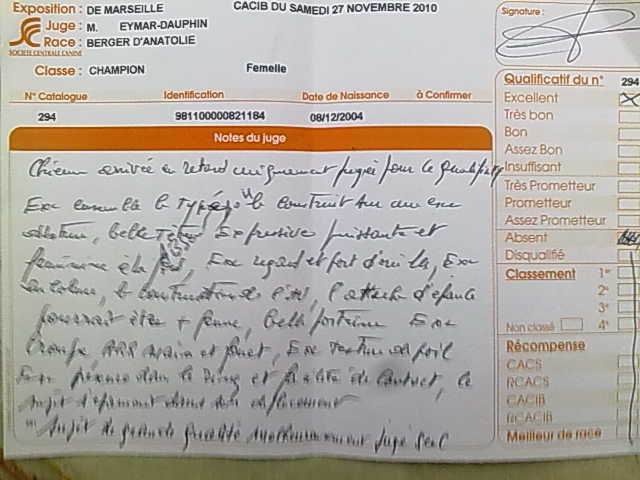 Exposition : DE MARSEILLE
CACIB DU SAMEDI 27 NOVEMBRE 2010
Juge : M. EYMAR-DAUPHIN
Race : BERGER D'ANATOLIE
SOCIÉTÉ CENTRALE CANINE
Classe : CHAMPION Femelle
N° Catalogue Identification Date de Naissance à Confirmer
294 981100000821184 08/12/2004
Notes du juge
Chienne arrivée en retard uniquement jugée pour le qualificatif
Exc ensemble b typée b construit sur une exc
ossature, belle tête Expressive puissante et
féminine à la, Exc regard et port d'oreilles, Exc
encolure, b construction de l', l'attache d'épaule
pourrait être + ferme, belle poitrine Exc
Croupe et fouet, Exc texture de poil
Exc présence dans le Ring et facilité de contact, le
sujet dans son déplacement
"Sujet de grande qualité malheureusement jugé seul
Signature :
Qualificatif du n° 294
Excellent
Très bon
Bon
Assez Bon
Insuffisant
Très Prometteur
Prometteur
Assez Prometteur
Absent
Disqualifié
Classement 1er
2e
3e
Non classé 4e
Récompense
CACS
RCACS
CACIB
RCACIB
Meilleur de race